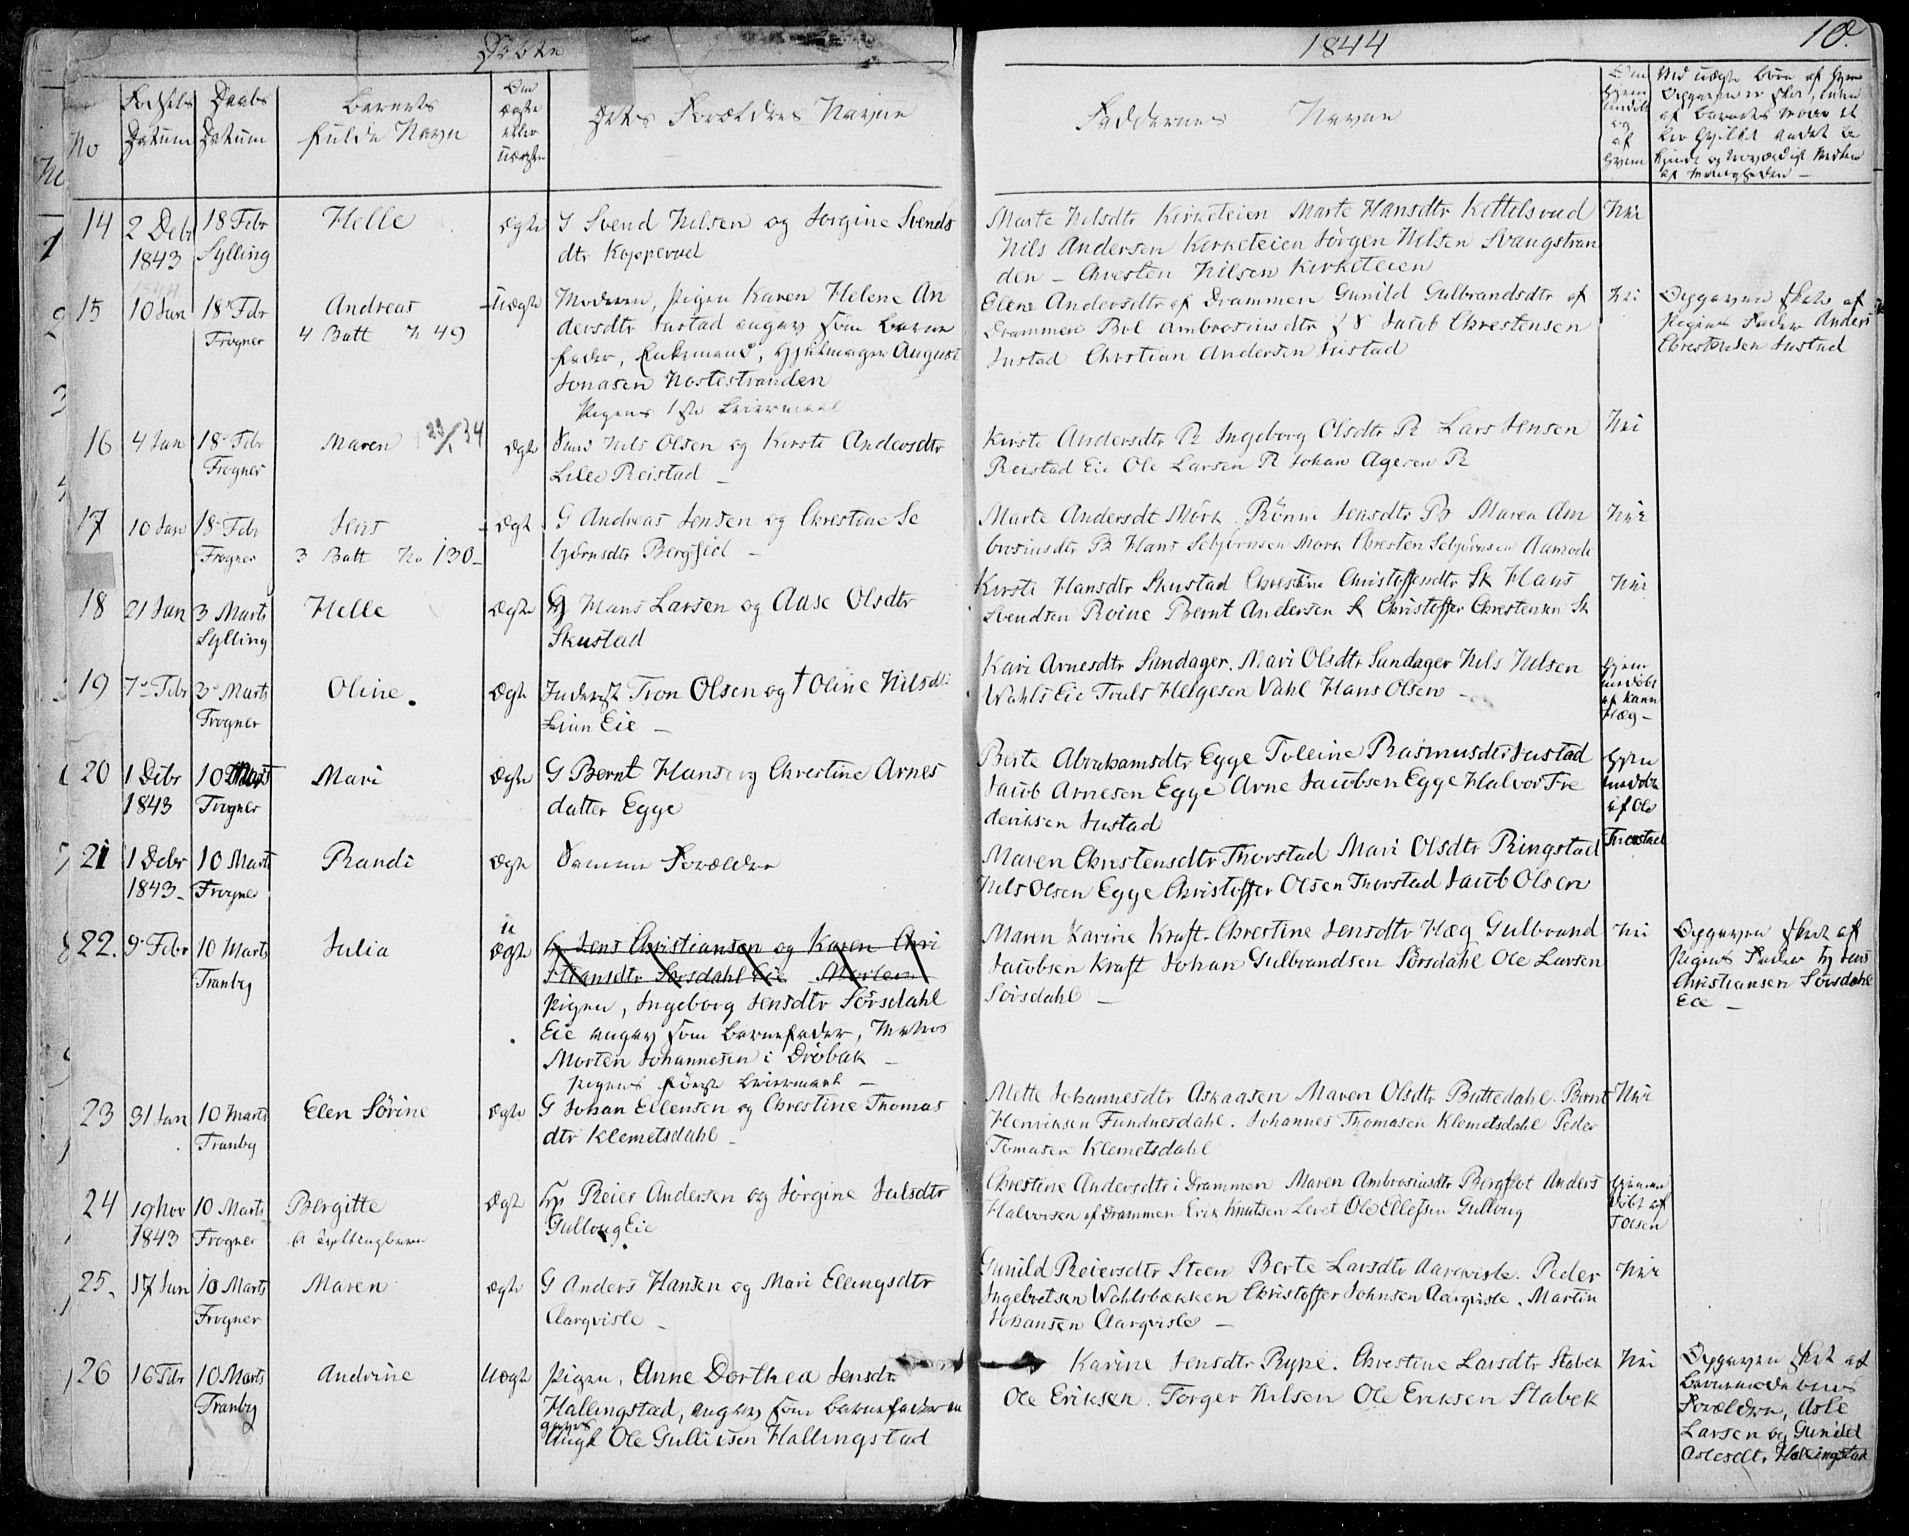 Døbte
1844
10.
No
Fødsels Datum
Daabs Datum
Barnets fulde Navn
Om ægte eller uægte
Dets Forældres Navne
Faddernes Navne
14 2 Debr 1843 18 Febr Sylling Helle ægte G Svend Nilsen og Jorgine Svends
dtr Koppervd
Marte Nilsdtr Kirketeien Marte Hansdtr Kittelsrud Nei
Nils Andersen Kirketeien Jørgen Nilsen Svangstran
den – Chresten Nilsen Kirketeien
15 10 Jan 18 Febr Frogner Andreas uægte Moderen, Pigen Karen Helene An
4 Batt N 49
dersdtr Justad angav som Barne
fader, Enkemand, Hjulmager August
Jonasen Nostestranden
Pigens 1ste Leiermaal
Elene Andersdtr af Drammen Gunild Gulbrandsdtr af Nei
Drammen Bol Ambrosiusdtr Jacob Chrestensen
Justad Christian Andersen Justad
Opgaven skete af
Pigens Fader Anders
Chrestensen Justad
16 4 Jan 18 Febr Frogner Maren ægte Nils Olsen og Kirsti Andersdtr
Lille Reistad –
Kirsti Andersdtr R Ingeborg Olsdtr R Lars Jensen Nei
Reistad Eie Ole Larsen R Johan Agesen R
17 10 Jan 18 Febr Frogner Jens ægte G Andreas Jensen og Chrestine Se
3 Batt No 130
bjørnsdtr Bergflot –
Marte Andersdt Mørk Rønne Jensdtr B Maren Am Nei
brosiusdtr B Hans Sebjørnsen Mørk Chresten Sebjørnsen Aamodt
18 21 Jan 3 Marts Sylling Helle ægte Hans Larsen og Aase Olsdtr
Skustad
Kirsti Hansdtr Skustad Chrestine Christoffersdtr Sk Hans Nei
Svendsen Roine Bernt Andersen Sk Christoffer Chrestensen Sk
19 7 Febr 3 Marts Frogner Oline ægte Inderst Tron Olsen og † Oline Nilsdtr
Lian Eie –
Kari Arnesdtr Sundager. Mari Olsdtr Sundager Nils Nilsen
Wahls Eie Truls Helgesen Vahl Hans Olsen –
20 1 Debr 1843 10 Marts Frogner Mari ægte G Bernt Hansen og Chrestine Arnes
datter Egge
Berte Abrahamsdtr Egge Tolline Rasmusdtr Justad
Jacob Arnesen Egge Arne Jacobsen Egge Halvor Fre
deriksen Justad
Hjemmedøbt af Ole Thorstad
21 1 Debr 1843 10 Marts Frogner Randi ægte Samme Forældre
Maren Chrestensdtr Thorstad Mari Olsdtr Ringstad
Nils Olsen Egge Christoffer Olsen Thorstad Jacob Olsen
22. 9 Febr 10 Marts Tranby Julia uægte Jens Christiansen og Karen Chri
stiansdtr Sørsdahl Eie
Pigen, Ingeborg Jensdtr Sørsdahl
Eie angav som Barnefader, Matros
Morten Johannesen i Drøbak –
Pigens første Leiermaal –
Maren Karine Kraft. Chrestine Jensdtr Hæg Gulbrand Nei
Jacobsen Kraft Johan Gulbrandsen Sørsdahl Ole Larsen
Sørsdahl –
Opgaven skeet af
Pigens Fader Jens
Christiansen Sørsdahl
Eie –
23 31 Jan 10 Marts Tranby Elen Sørine ægte G Johan Ellensen og Chrestine Thomas
dtr Klemetsdahl –
Mette Johannesdtr Askaasen Maren Olsdtr Buttedahl. Bernt Nei
Henriksen Fundnesdahl. Johannes Thomasen Klemetsdahl Peder
Tomasen Klemetsdahl
24 19 Nov 1843 10 Marts Frogner Bergitte ægte Reier Andersen og Jørgine Julsdtr
A Tvillingbarn
Gulloug Eie
Chrestine Andersdtr i Drammen Maren Ambrosiusdtr Bergflot Anders
Halvorsen af Drammen Erik Knutsen Leret Ole Ellefsen Gulloug
25. 17 Jan 10 Marts Frogner Maren ægte G Anders Hansen og Mari Ellingsdtr
Aarqvisle –
Gunild Reiersdtr Steen Berte Larsdtr Aarqvisle. Peder Nei
Ingebretsen Wahlsbækken Christoffer Johnsen Aarqvisle. Martin
Johansen Aarqvisle –
26 16 Febr 10 Marts Tranby Andrine Uægte Pigen, Anne Dorthea Jensdtr
Hallingstad, angav som Barnefader
Ungk Ole Gulliksen Hallingstad
Karine Jensdtr Rype. Chrestine Larsdtr Stabek Nei
Ole Eriksen. Torger Nilsen Ole Eriksen Stabek
Opgaven skeet af
Barnemoderens
Forældre, Asle
Larsen og Gunild
Aslesdt. Hallingstad